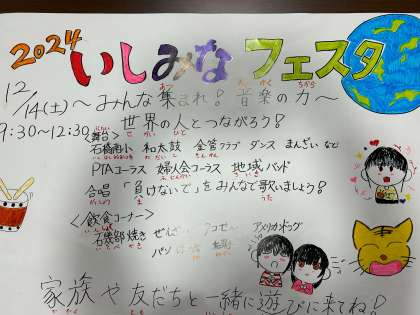 2024 いしみな フェスタ
12/14(土)～みんな集まれ!音楽の力～
9:30～12:30 世界の人とつながろう!
<舞台>
和太鼓 金管クラブ ダンス まんざい など
PTAコーラス 婦人会コーラス 地域バンド
合唱 「負けないで」をみんなで歌いましょう!
<飲食コーナー>
石磯部焼き ぜんざい アメリカドッグ
パン
家族や友だちと一緒に遊びに来てね!